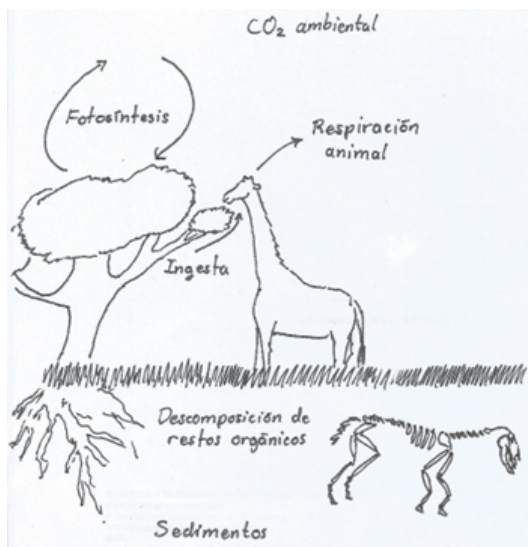 CO₂ ambiental
Fotosíntesis
Respiración
animal
Ingesta
Descomposición de
restos orgánicos
Sedimentos